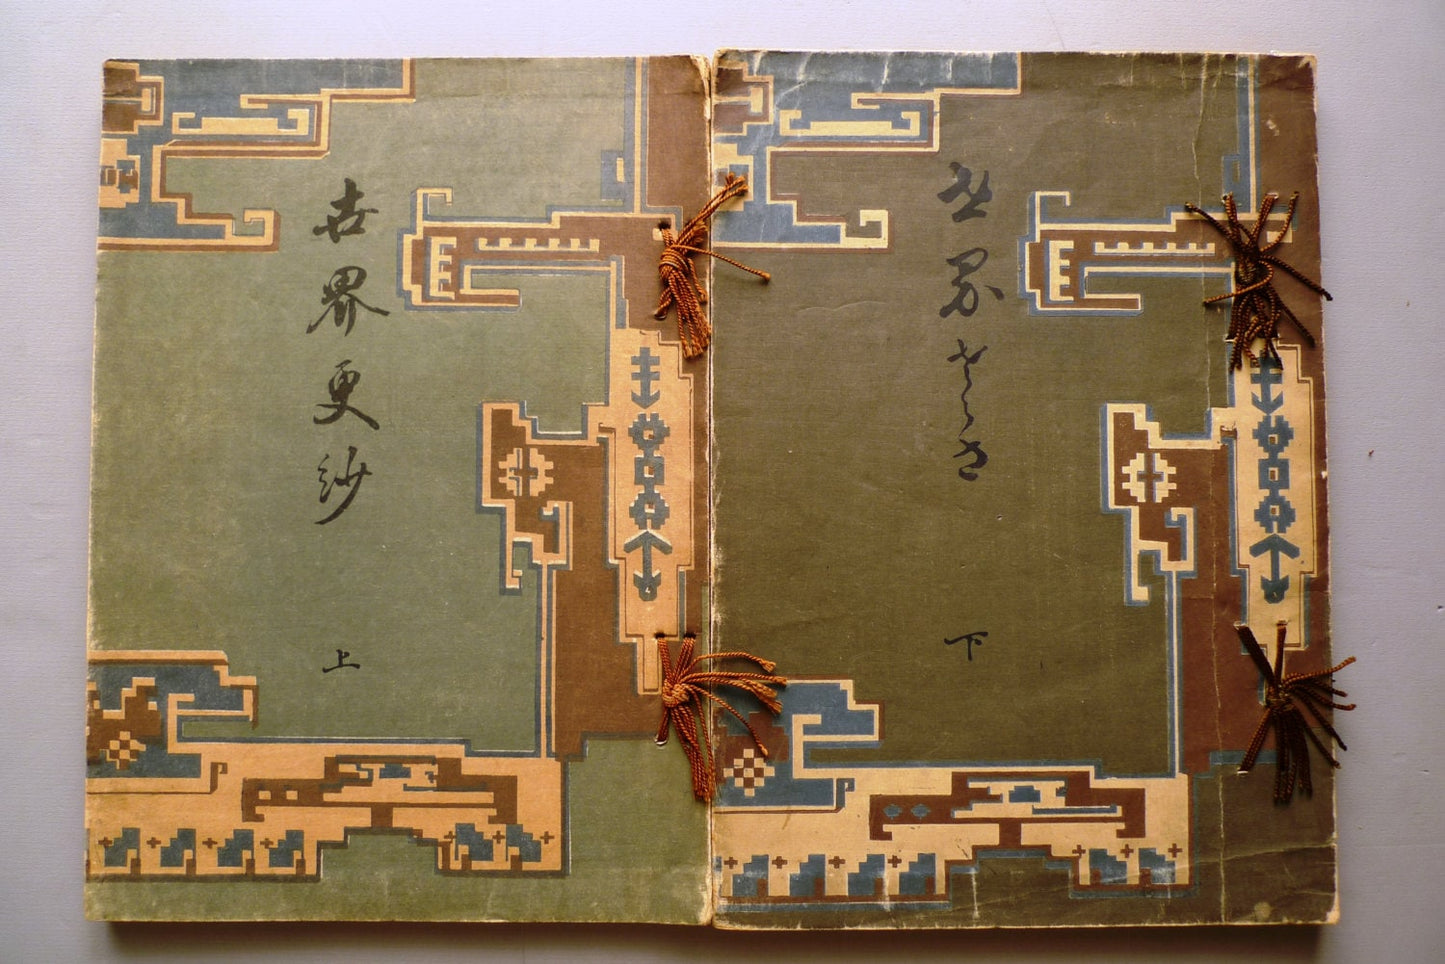 世界更紗
上
世界さらさ
下